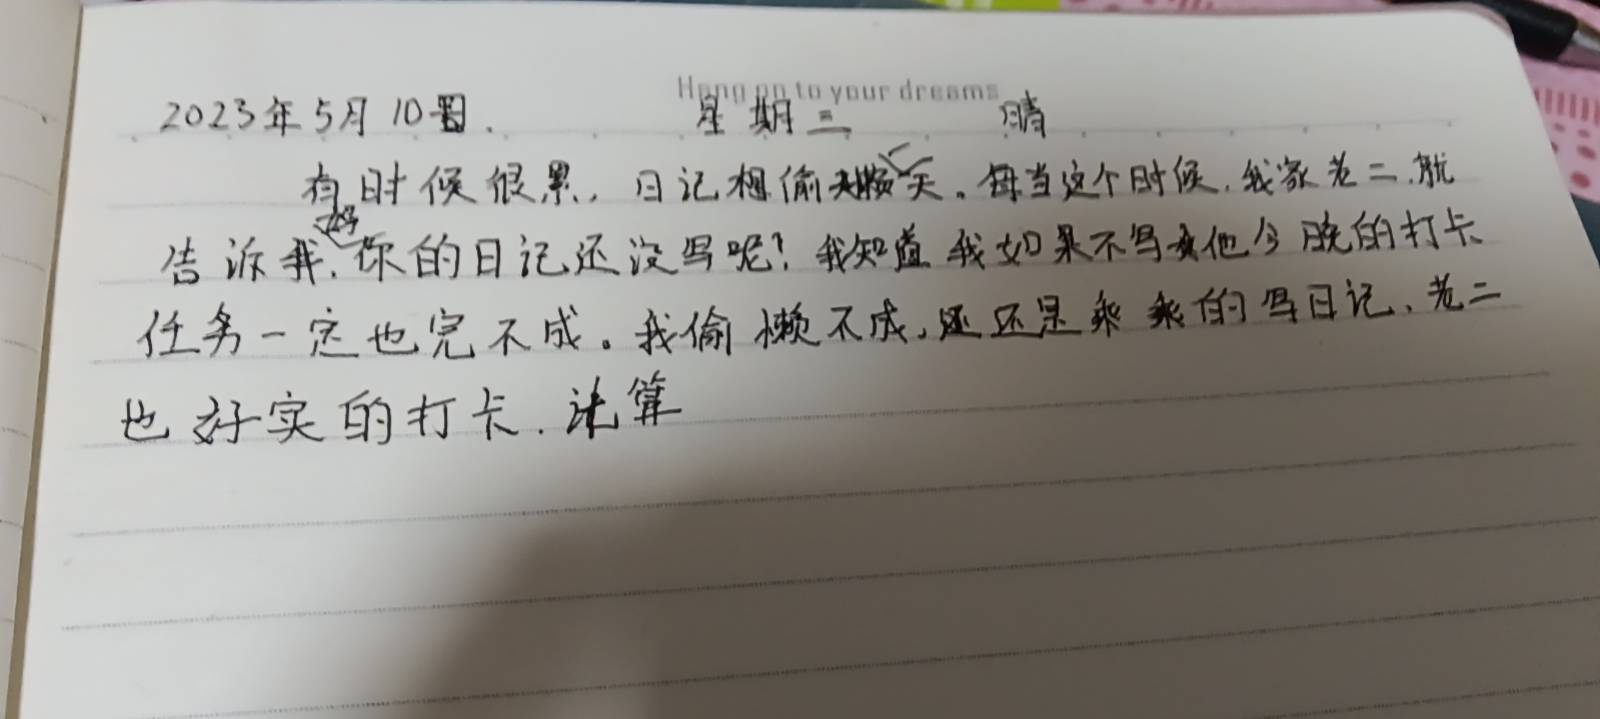 Hang on to your dreams
2023年5月10日. 星期三 晴
有时候很累, 日记想偷懒一天。每当这个时候, 我家老二, 就
告诉我, 妈 你的日记还没写呢? 我知道我如果不写他今晚的打卡
任务一定也完不成。我偷懒不成, 还是乖乖的写日记、老二
也好实的打卡. 计算